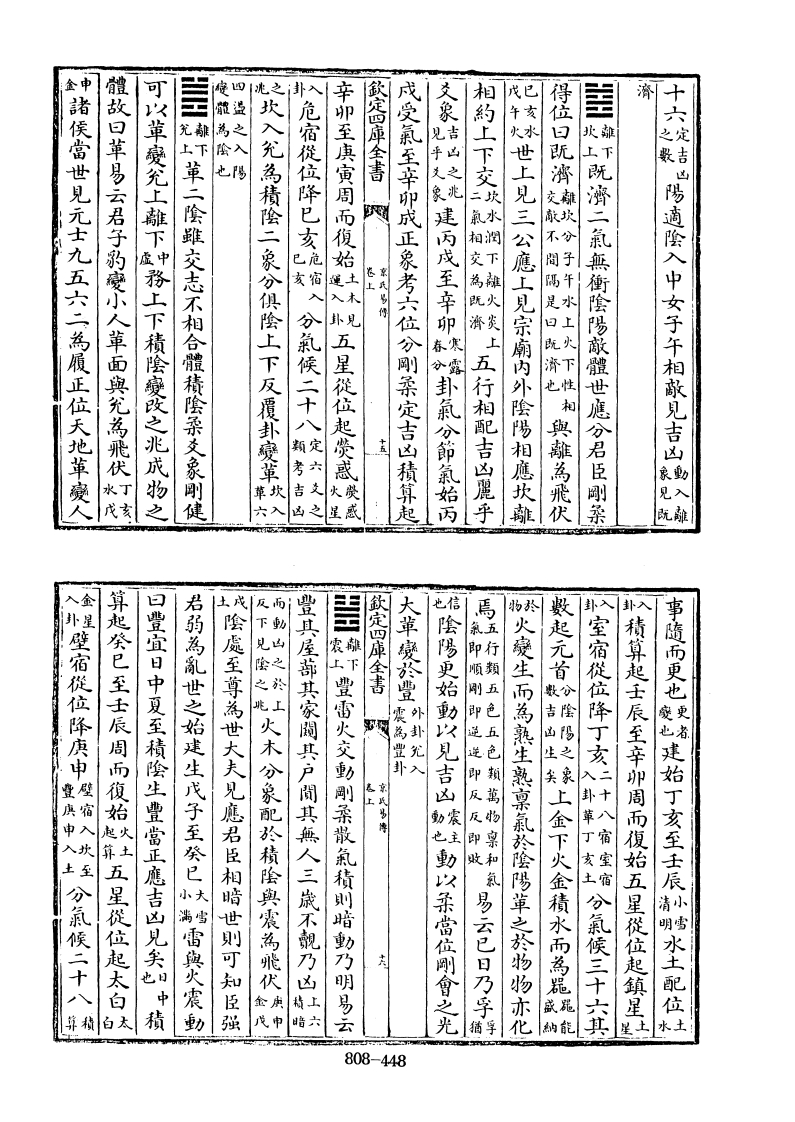 十六定吉凶之數陽適陰入中女子午相敵見吉凶動入離象見既
濟
䷾離下坎上既濟二氣無衝陰陽敵體世應分君臣剛柔
得位曰既濟離坎分子午水上火下性相交敵不間隔是曰既濟也與離為飛伏
己亥水戊午火世上見三公應上見宗廟內外陰陽相應坎離
相約上下交坎水潤下離火炎上二氣相交為既濟五行相配吉凶麗乎
爻象吉凶之兆見乎爻象建丙戌至辛卯寒露春分卦氣分節氣始丙
戌受氣至辛卯成正象考六位分剛柔定吉凶積算起
欽定四庫全書 京氏易傳卷上 十五
辛卯至庚寅周而復始土木見運入卦五星從位起熒惑熒惑火星
入卦危宿從位降己亥危宿入己亥分氣候二十八定六爻之類考吉凶
之兆坎入兌為積陰二象分俱陰上下反覆卦變革坎入革六
四盪之入陽變體為陰也
䷰離下兌上革二陰雖交志不相合體積陰柔爻象剛健
可以革變兌上離下中虛務上下積陰變改之兆成物之
體故曰革易云君子豹變小人革面與兌為飛伏丁亥水戊
申金諸侯當世見元士九五六二為履正位天地革變人
事隨而更也更者變也建始丁亥至壬辰小雪清明水土配位土水
入卦積算起壬辰至辛卯周而復始五星從位起鎮星土星
入卦室宿從位降丁亥二十八宿室宿入卦革丁亥土分氣候三十六其
數起元首分陰陽之象數吉凶生矣上金下火金積水而為噐噐能盛納
於物火變生而為熟生熟稟氣於陰陽革之於物物亦化
焉五行類五色五色類萬物稟和氣氣即順剛即逆逆即反反即敗易云巳日乃孚孚猶
信也陰陽更始動以見吉凶震主動也動以柔當位剛會之光
大革變於豐外卦兌入震為豐卦
欽定四庫全書 京氏易傳卷上 十六
䷶離下震上豐雷火交動剛柔散氣積則暗動乃明易云
豐其屋蔀其家闚其戶闃其無人三歲不覿乃凶上六積暗
而動凶之於上反下見陰之兆火木分象配於積陰與震為飛伏庚申金戊
戌土陰處至尊為世大夫見應君臣相暗世則可知臣強
君弱為亂世之始建生戊子至癸巳大雪小滿雷與火震動
曰豐宜日中夏至積陰生豐當正應吉凶見矣日中也積
算起癸巳至壬辰周而復始火土起算五星從位起太白太白
金星入卦壁宿從位降庚申壁宿入坎至豐庚申入土分氣候二十八積算
808-448